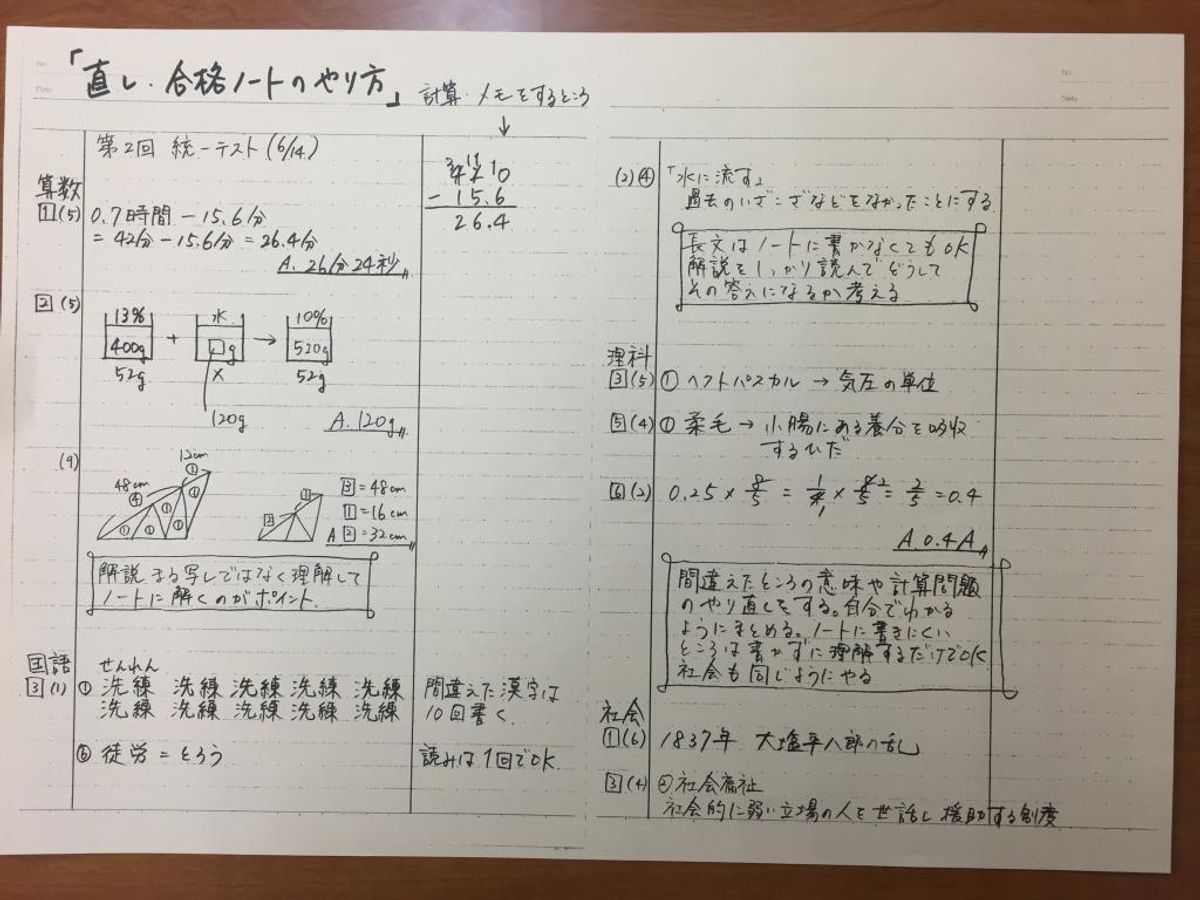 「直し・合格ノートのやり方」
計算・メモをするところ
↓
第2回 統一テスト(6/14)
算数
1(5) 0.7時間 − 15.6分
= 42分 − 15.6分 = 26.4分
A. 26分24秒
3 11 10
42
− 15.6
26.4
2(5)
13% 水 10%
400g + □g → 520g
52g × 52g
120g
A. 120g
(9)
12cm
48cm
① ④ ① ① ① ① ①
① 2
3 = 48cm
1 = 16cm
A 2 = 32cm
解説 まる写しではなく理解して
ノートに解くのがポイント.
国語
せんれん
3(1) ① 洗練 洗練 洗練 洗練 洗練
洗練 洗練 洗練 洗練 洗練
間違えた漢字は
10回書く.
⑥ 徒労 = とろう
読みは1回でOK.
(2)④ 「水に流す」
過去のいざこざなどをなかったことにする.
長文はノートに書かなくてもOK
解説をしっかり読んで どうして
その答えになるか考える
理科
3(5) ① ヘクトパスカル → 気圧の単位
5(4) ① 柔毛 → 小腸にある養分を吸収
するひだ
6(2) 0.25 × 8/5 = 1/4 × 8/5 = 2/5 = 0.4
A. 0.4A
間違えたところの意味や計算問題
のやり直しをする。自分でわかる
ようにまとめる。ノートに書きにくい
ところは書かずに理解するだけでOK
社会も同じようにやる
社会
1(6) 1837年 大塩平八郎の乱
3(4) ④ 社会福祉
社会的に弱い立場の人を世話し援助する制度